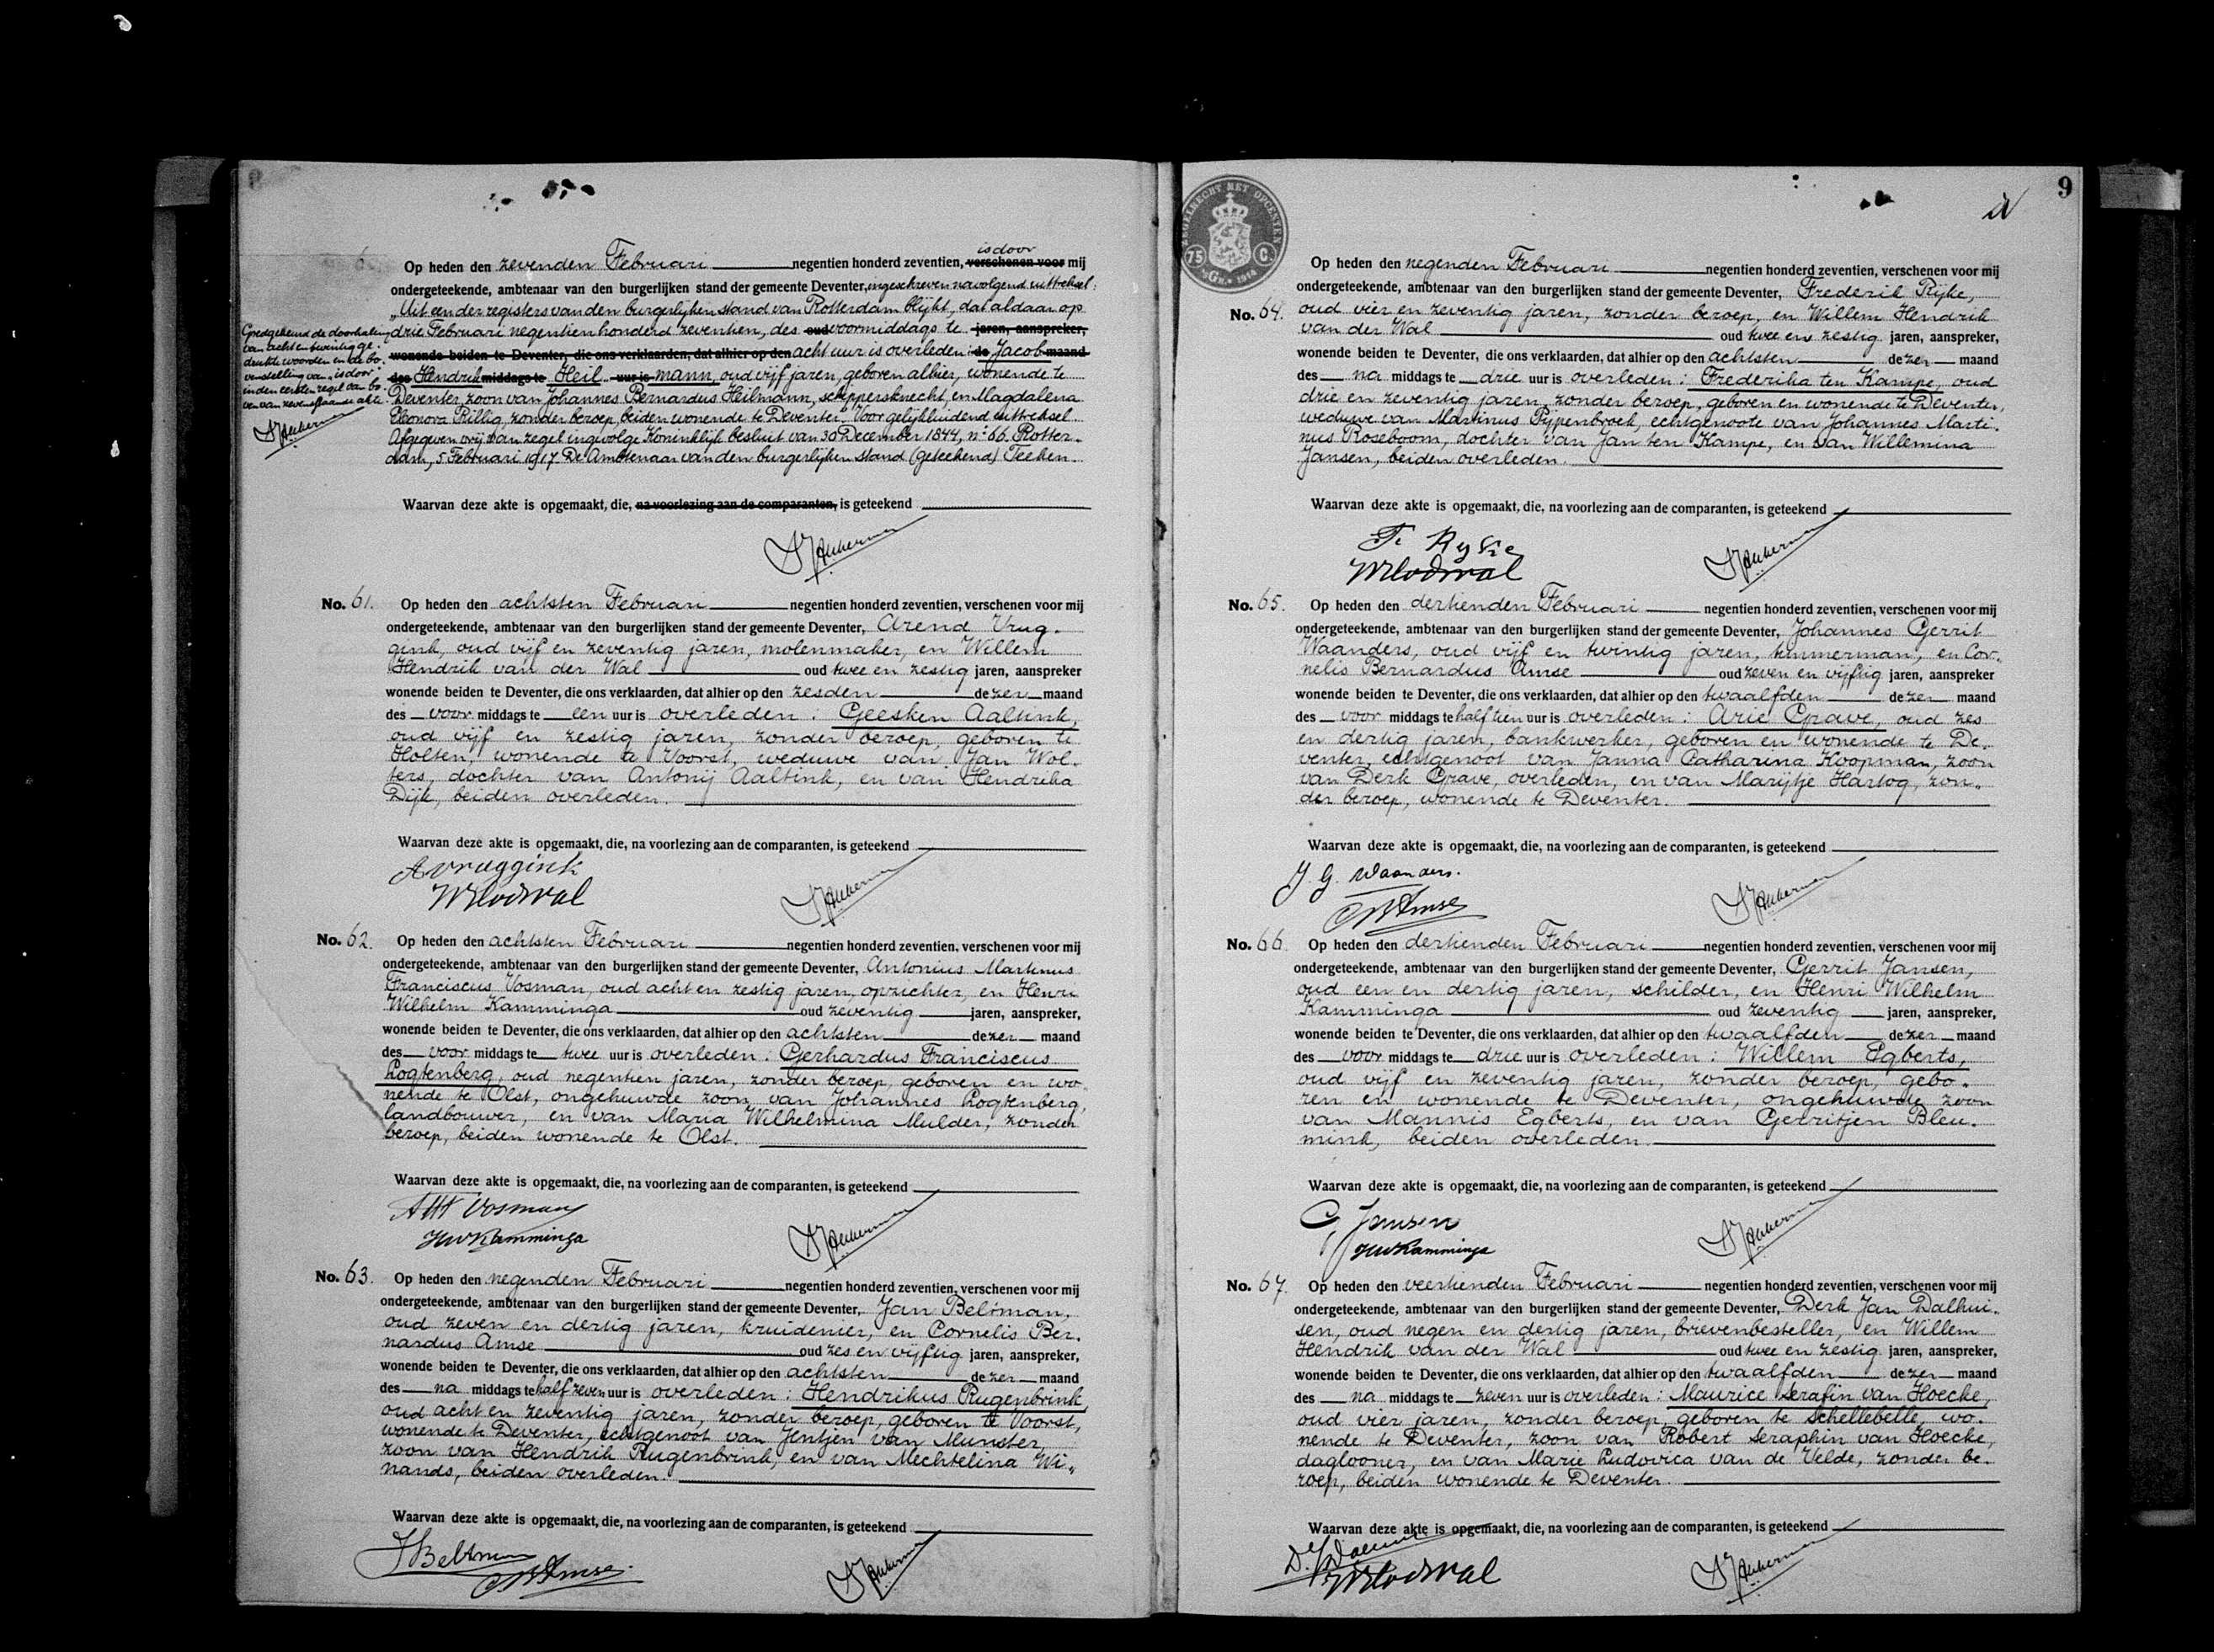 6
Op heden den zevenden Februari negentien honderd zeventien, is door verschenen voor mij
ondergeteekende, ambtenaar van den burgerlijken stand der gemeente Deventer, ingeschreven navolgend uittreksel:
„Uit een der registers van den burgerlijken stand van Rotterdam blijkt, dat aldaar op
drie Februari negentien honderd zeventien, des oud voormiddags te jaren, aanspreker,
wonende beiden te Deventer, die ons verklaarden, dat alhier op den acht uur is overleden: de Jacob maand
des Hendrik middags te Heil uur is mann, oud vijf jaren, geboren alhier, wonende te
Deventer, zoon van Johannes Bernardus Heilmann, schippersknecht, en Magdalena
Eleonora Rillig, zonder beroep, beiden wonende te Deventer." Voor gelijkluidend uittreksel.
Afgegeven vrij van zegel ingevolge Koninklijk besluit van 30 December 1844, n° 66. Rotter-
dam, 5 Februari 1917. De Ambtenaar van den burgerlijken stand (geteekend) Teeken.
Goedgekeurd de doorhaling
van acht en twintig ge-
drukte woorden en de bo-
venstelling van „is door"
in den eersten regel van bo-
venvan zevenstaande akte.
Waarvan deze akte is opgemaakt, die, na voorlezing aan de comparanten, is geteekend
No. 61. Op heden den achtsten Februari negentien honderd zeventien, verschenen voor mij
ondergeteekende, ambtenaar van den burgerlijken stand der gemeente Deventer, Arend Vrug-
gink, oud vijf en zeventig jaren, molenmaker, en Willem
Hendrik van der Wal oud twee en zestig jaren, aanspreker
wonende beiden te Deventer, die ons verklaarden, dat alhier op den zesden dezer maand
des voor middags te een uur is overleden: Geesken Aaltink,
oud vijf en zestig jaren, zonder beroep, geboren te
Holten, wonende te Voorst, weduwe van Jan Wol-
ters, dochter van Antonij Aaltink, en van Hendrika
Dijk, beiden overleden.
Waarvan deze akte is opgemaakt, die, na voorlezing aan de comparanten, is geteekend
A Vruggink
WHvdWal
No. 62. Op heden den achtsten Februari negentien honderd zeventien, verschenen voor mij
ondergeteekende, ambtenaar van den burgerlijken stand der gemeente Deventer, Antonius Martinus
Franciscus Vosman, oud acht en zestig jaren, opzichter, en Henri
Wilhelm Kamminga oud zeventig jaren, aanspreker,
wonende beiden te Deventer, die ons verklaarden, dat alhier op den achtsten dezer maand
des voor middags te twee uur is overleden: Gerhardus Franciscus
Logtenberg, oud negentien jaren, zonder beroep, geboren en wo-
nende te Olst, ongehuwde zoon van Johannes Logtenberg,
landbouwer, en van Maria Wilhelmina Mulder, zonder
beroep, beiden wonende te Olst.
Waarvan deze akte is opgemaakt, die, na voorlezing aan de comparanten, is geteekend
AMF Vosman
HWKamminga
No. 63. Op heden den negenden Februari negentien honderd zeventien, verschenen voor mij
ondergeteekende, ambtenaar van den burgerlijken stand der gemeente Deventer, Jan Beltman,
oud zeven en dertig jaren, kruidenier, en Cornelis Ber-
nardus Amse oud zes en vijftig jaren, aanspreker,
wonende beiden te Deventer, die ons verklaarden, dat alhier op den achtsten dezer maand
des na middags te half zeven uur is overleden: Hendrikus Rugenbrink
oud acht en zeventig jaren, zonder beroep, geboren te Voorst,
wonende te Deventer, echtgenoot van Jentjen van Munster,
zoon van Hendrik Rugenbrink, en van Mechtelina Wi-
nands, beiden overleden.
Waarvan deze akte is opgemaakt, die, na voorlezing aan de comparanten, is geteekend
JBeltman
CBAmse
9
ZEGELRECHT MET OPCENTEN
75 C
No. 64. Op heden den negenden Februari negentien honderd zeventien, verschenen voor mij
ondergeteekende, ambtenaar van den burgerlijken stand der gemeente Deventer, Frederik Rijke,
oud vier en zeventig jaren, zonder beroep, en Willem Hendrik
van der Wal oud twee en zestig jaren, aanspreker,
wonende beiden te Deventer, die ons verklaarden, dat alhier op den achtsten dezer maand
des na middags te drie uur is overleden: Frederika ten Kampe, oud
drie en zeventig jaren, zonder beroep, geboren en wonende te Deventer,
weduwe van Martinus Pijpenbroek, echtgenoote van Johannes Marti-
nus Roseboom, dochter van Jan ten Kampe, en van Willemina
Jansen, beiden overleden.
Waarvan deze akte is opgemaakt, die, na voorlezing aan de comparanten, is geteekend
Fr Rijke
WHvdWal
No. 65. Op heden den dertienden Februari negentien honderd zeventien, verschenen voor mij
ondergeteekende, ambtenaar van den burgerlijken stand der gemeente Deventer, Johannes Gerrit
Waanders, oud vijf en twintig jaren, timmerman, en Cor-
nelis Bernardus Amse oud zeven en vijftig jaren, aanspreker
wonende beiden te Deventer, die ons verklaarden, dat alhier op den twaalfden dezer maand
des voor middags te half tien uur is overleden: Arie Grave, oud zes
en dertig jaren, bankwerker, geboren en wonende te De-
venter, echtgenoot van Janna Catharina Koopman, zoon
van Derk Grave, overleden, en van Marijtje Hartog, zon-
der beroep, wonende te Deventer.
Waarvan deze akte is opgemaakt, die, na voorlezing aan de comparanten, is geteekend
J. G. Waanders.
CBAmse
No. 66. Op heden den dertienden Februari negentien honderd zeventien, verschenen voor mij
ondergeteekende, ambtenaar van den burgerlijken stand der gemeente Deventer, Gerrit Jansen,
oud een en dertig jaren, schilder, en Henri Wilhelm
Kamminga oud zeventig jaren, aanspreker,
wonende beiden te Deventer, die ons verklaarden, dat alhier op den twaalfden dezer maand
des voor middags te drie uur is overleden: Willem Egberts,
oud vijf en zeventig jaren, zonder beroep, gebo-
ren en wonende te Deventer, ongehuwde zoon
van Mannis Egberts, en van Gerritjen Bleu-
mink, beiden overleden.
Waarvan deze akte is opgemaakt, die, na voorlezing aan de comparanten, is geteekend
G Jansen
HWKamminga
No. 67. Op heden den veertienden Februari negentien honderd zeventien, verschenen voor mij
ondergeteekende, ambtenaar van den burgerlijken stand der gemeente Deventer, Derk Jan Dalhui-
sen, oud negen en dertig jaren, brievenbesteller, en Willem
Hendrik van der Wal oud twee en zestig jaren, aanspreker,
wonende beiden te Deventer, die ons verklaarden, dat alhier op den twaalfden dezer maand
des na middags te zeven uur is overleden: Maurice Serafin van Hoecke,
oud vier jaren, zonder beroep, geboren te Schellebelle, wo-
nende te Deventer, zoon van Robert Seraphin van Hoecke,
daglooner, en van Marie Ludovica van de Velde, zonder be-
roep, beiden wonende te Deventer.
Waarvan deze akte is opgemaakt, die, na voorlezing aan de comparanten, is geteekend
WHvdWal